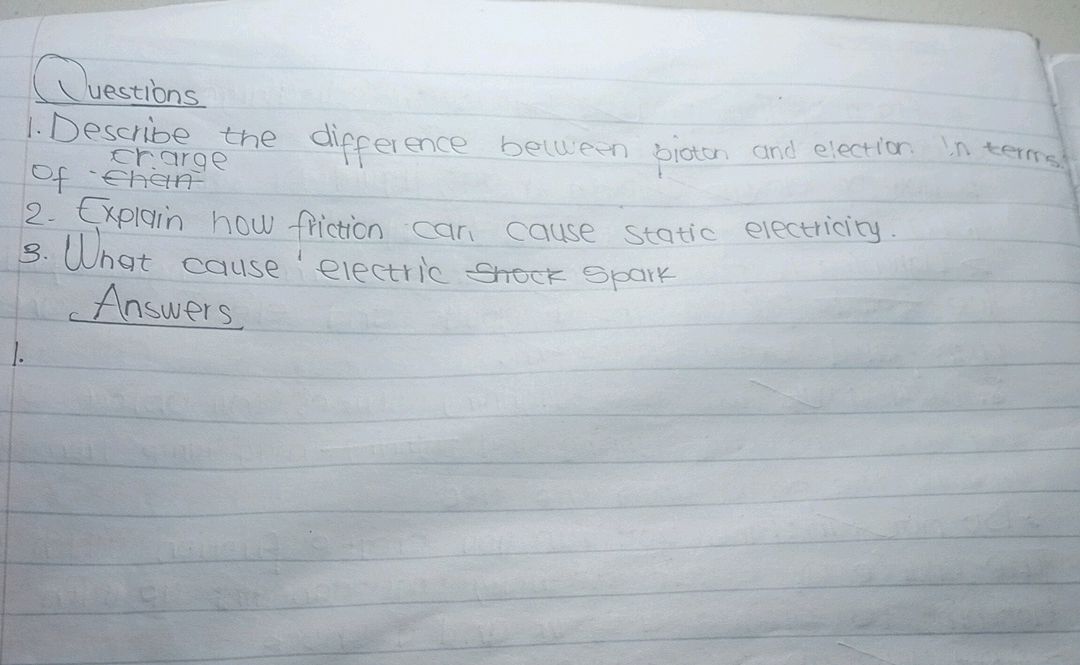 Questions
1. Describe the difference between proton and electron in terms
charge
of chan
2. Explain how friction can cause static electricity.
3. What cause electric shock spark
Answers
1.